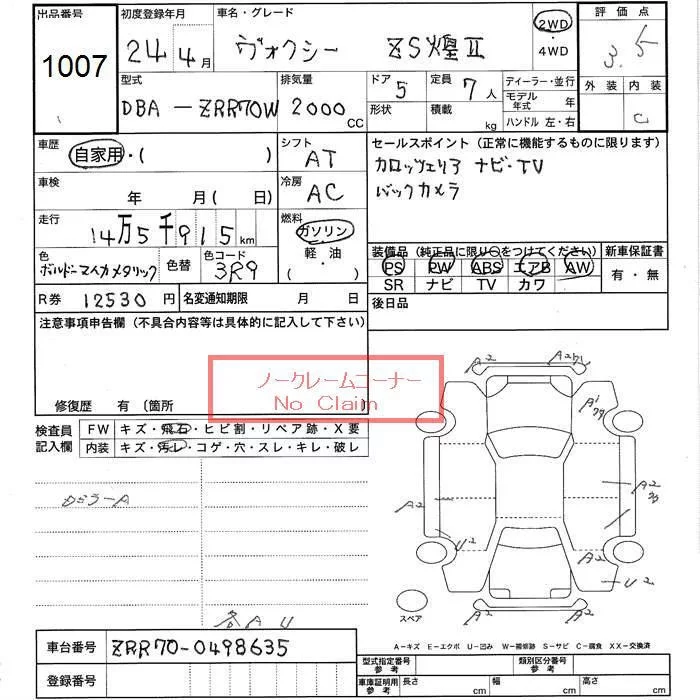 出品番号
1007
初度登録年月
24年4月
車名・グレード
ヴォクシー ZS煌Ⅱ
2WD
・
4WD
評価点
3.5
型式
DBA-ZRR70W
排気量
2000
CC
ドア
5
形状
定員
7人
積載
kg
ディーラー・並行
モデル年式 年
ハンドル 左・右
外装
内装
C
車歴
自家用・( )
シフト
AT
セールスポイント(正常に機能するものに限ります)
カロッツェリア ナビ・TV
バックカメラ
車検
年 月(日)
冷房
AC
走行
14万5千915km
燃料
ガソリン
軽油
( )
色
ボルドーマイカメタリック
色替
色コード
3R9
装備品(純正品に限り○をつけてください)
PS PW ABS エアB AW
SR ナビ TV カワ
新車保証書
有・無
R券 12530円
名変通知期限 月 日
後日品
注意事項申告欄(不具合内容等は具体的に記入して下さい)
ノークレームコーナー
No Claim
修復歴 有(箇所 )
検査員
記入欄
FW
キズ・飛石・ヒビ割・リペア跡・X要
内装
キズ・汚レ・コゲ・穴・スレ・キレ・破レ
各A U
A2
A2
A1
A2
A2
U2
A2
U2
スペア
A-キズ E-エクボ U-凹み W-補修跡 S-サビ C-腐食 XX-交換済
車台番号 ZRR70-0498635
登録番号
型式指定番号
参考
類別区分番号
参考
車庫証明用
参考
長さ cm
幅 cm
高さ cm